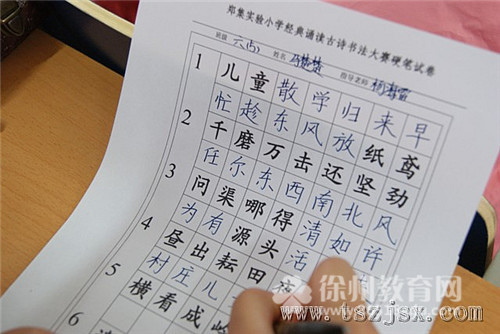 郑集实验小学经典诵读古诗书法大赛硬笔试卷
班级 六(5) 姓名 指导老师
1 儿童散学归来早
忙趁东风放纸鸢
2 千磨万击还坚劲
任尔东西南北风
3 问渠哪得清如许
为有源头活
4 昼出耘田
村庄儿
5 横看成岭
6
徐州教育网
www.xszjsx.com